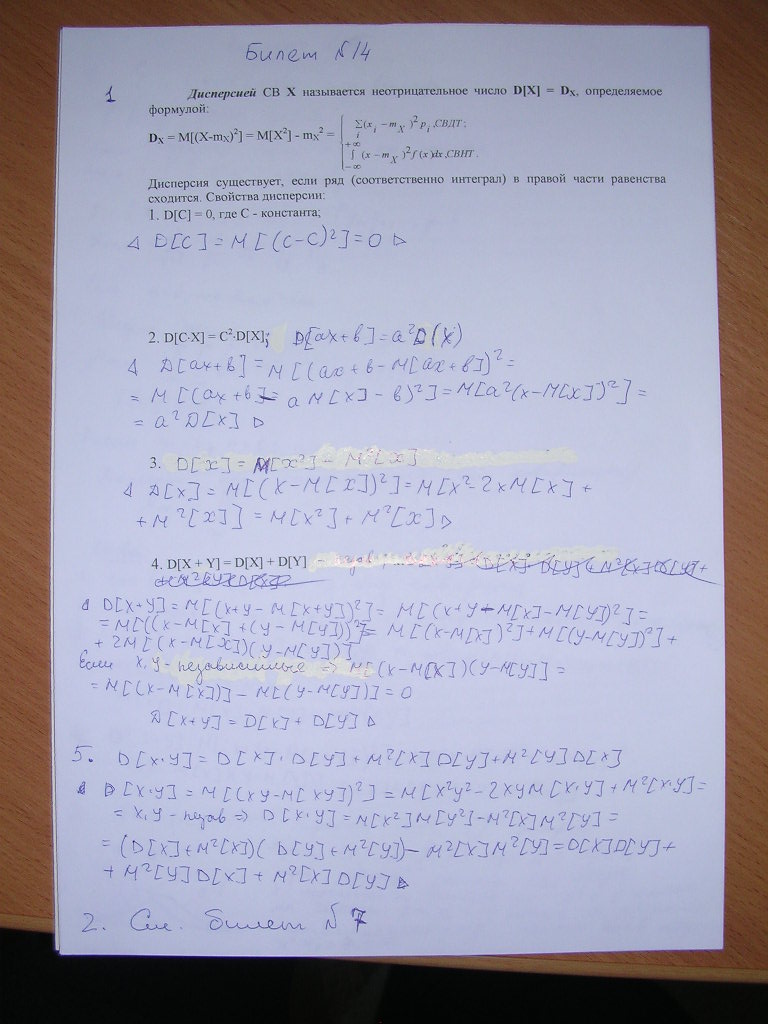 Билет №14
1
Дисперсией СВ X называется неотрицательное число D[X] = Dₓ, определяемое
формулой:
Dₓ = M[(X-mₓ)²] = M[X²] - mₓ² = { ∑ᵢ(xᵢ – mₓ)² pᵢ, СВДТ;
∫₋∞⁺∞ (x – mₓ)² f(x)dx, СВНТ.
Дисперсия существует, если ряд (соответственно интеграл) в правой части равенства
сходится. Свойства дисперсии:
1. D[C] = 0, где C - константа;
◁ D[C] = M[(C-C)²] = 0 ▷
2. D[C·X] = C²·D[X]; D[ax+b] = a²D(X)
◁ D[ax+b] = M[(ax+b-M[ax+b])² =
= M[(ax+b - aM[x] - b)²] = M[a²(x-M[x])²] =
= a²D[x] ▷
3. D[x] = M[x²] - M²[x]
◁ D[x] = M[(X-M[x])²] = M[x²-2xM[x] +
+M²[x]] = M[x²] + M²[x] ▷
4. D[X + Y] = D[X] + D[Y]
◁ D[X+y] = M[(x+y-M[x+y])²] = M[(x+y-M[x]-M[y])²] =
= M[((x-M[x]+(y-M[y]))²] = M[(x-M[x])²]+M[(y-M[y])²]+
+ 2M[(x-M[x])(y-M[y])]
Если x,y - независимые ⇒ M[(x-M[x])(y-M[y]] =
= M[(x-M[x])] - M[(y-M[y])] = 0
D[x+y] = D[x] + D[y] ▷
5. D[x·y] = D[x]·D[y]+M²[x]D[y]+M²[y]D[x]
◁ D[x·y] = M[(xy-M[xy])²] = M[x²y²-2xyM[x·y]+M²[x·y] =
= x,y - незав ⇒ D[x·y] = M[x²]M[y²]-M²[x]M²[y] =
= (D[x]+M²[x])(D[y]+M²[y])- M²[x]M²[y] = D[x]D[y]+
+ M²[y]D[x] + M²[x]D[y] ▷
2. См. билет №7